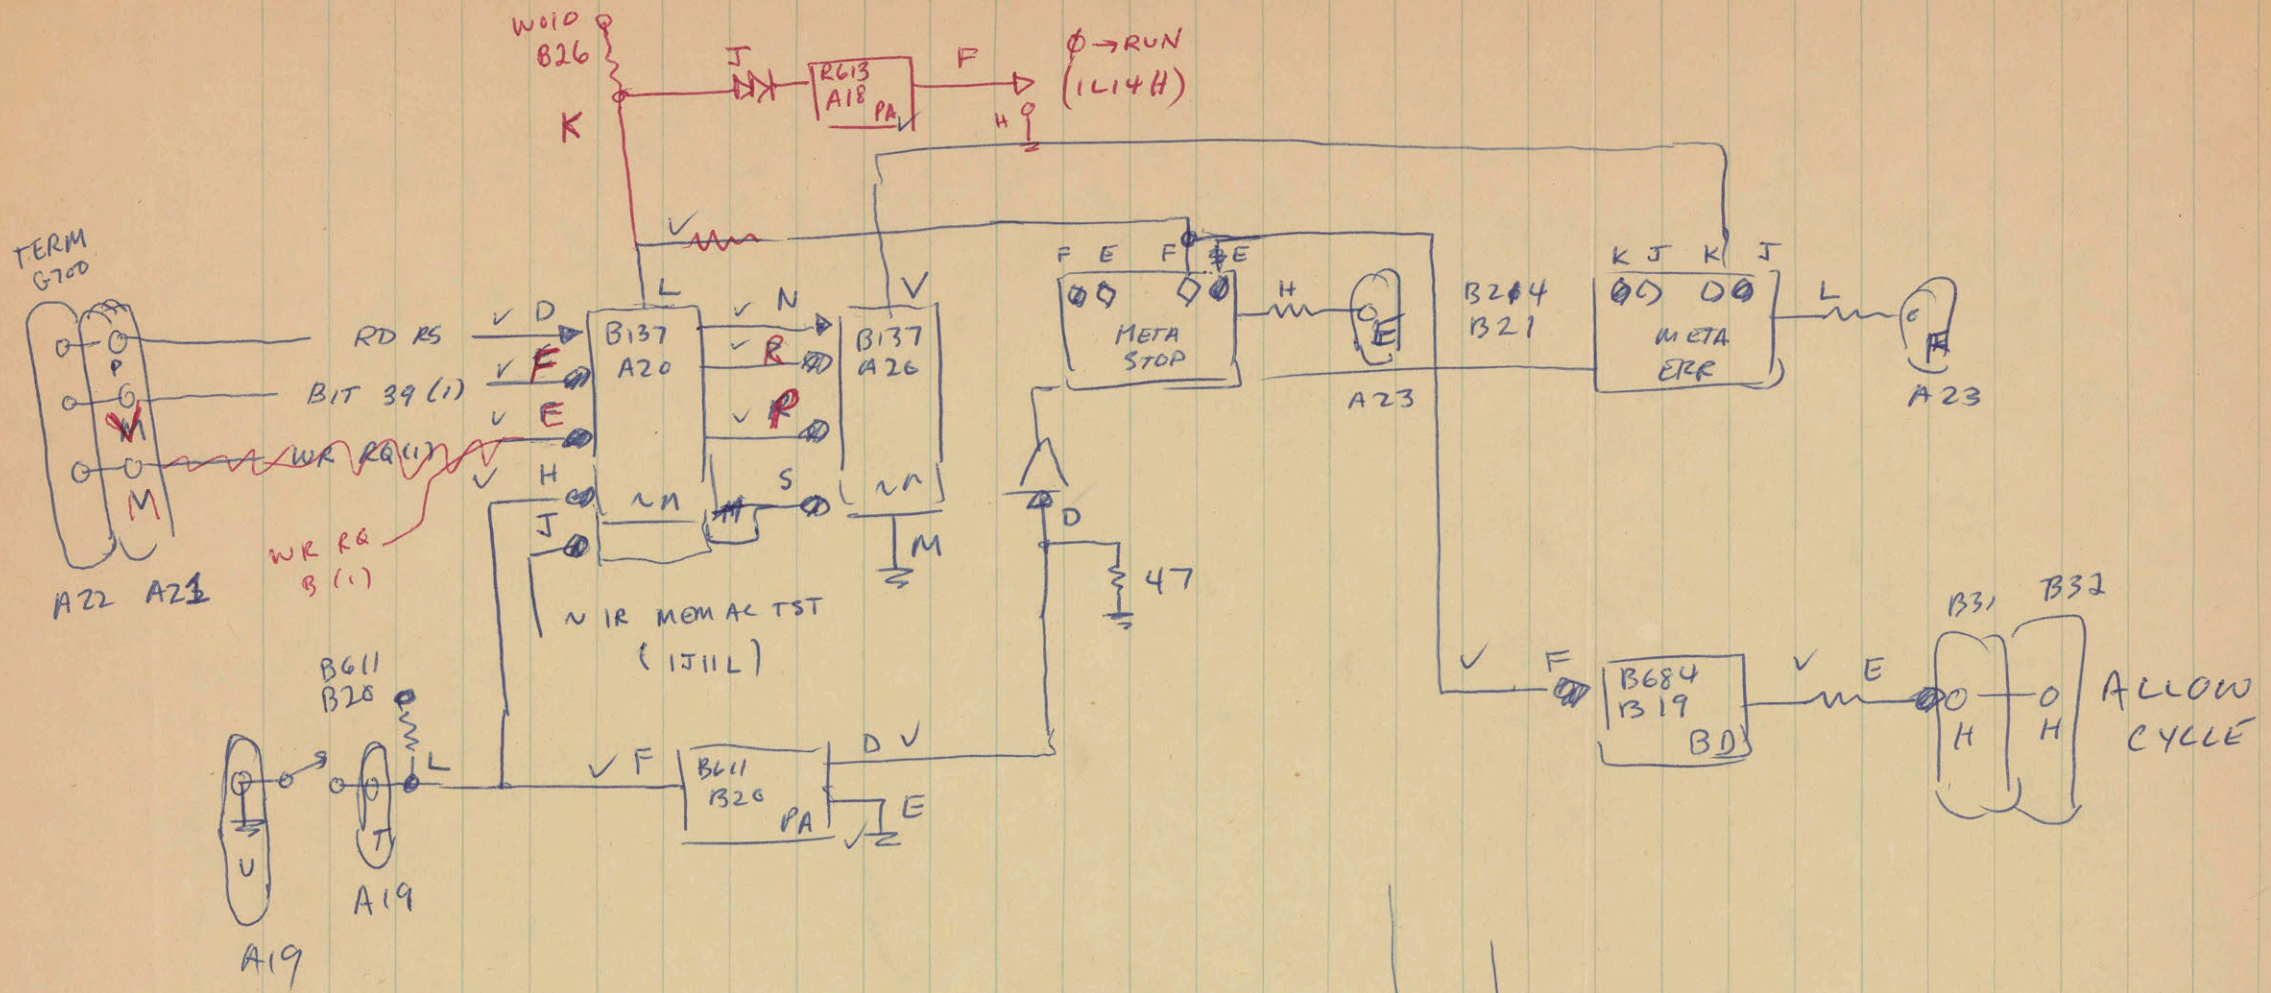 W010
B26
K
J
R613
A18
PA
F
H
Ø→RUN
(1L14H)
TERM
G700
P
V
M
A22
A21
RD RS
BIT 39 (1)
WR RQ(1)
WR RQ
B (1)
D
F
E
H
J
L
B137
A20
~M
N
R
P
S
V
B137
A26
~M
M
~ IR MEM AC TST
(1J11L)
F E F E
META
STOP
H
E
A23
B214
B21
K J K J
META
ERR
L
A23
D
47
B611
B20
L
U
A19
T
A19
F
B611
B20
PA
D
E
F
B684
B19
BD
E
B31
H
B32
H
ALLOW
CYCLE